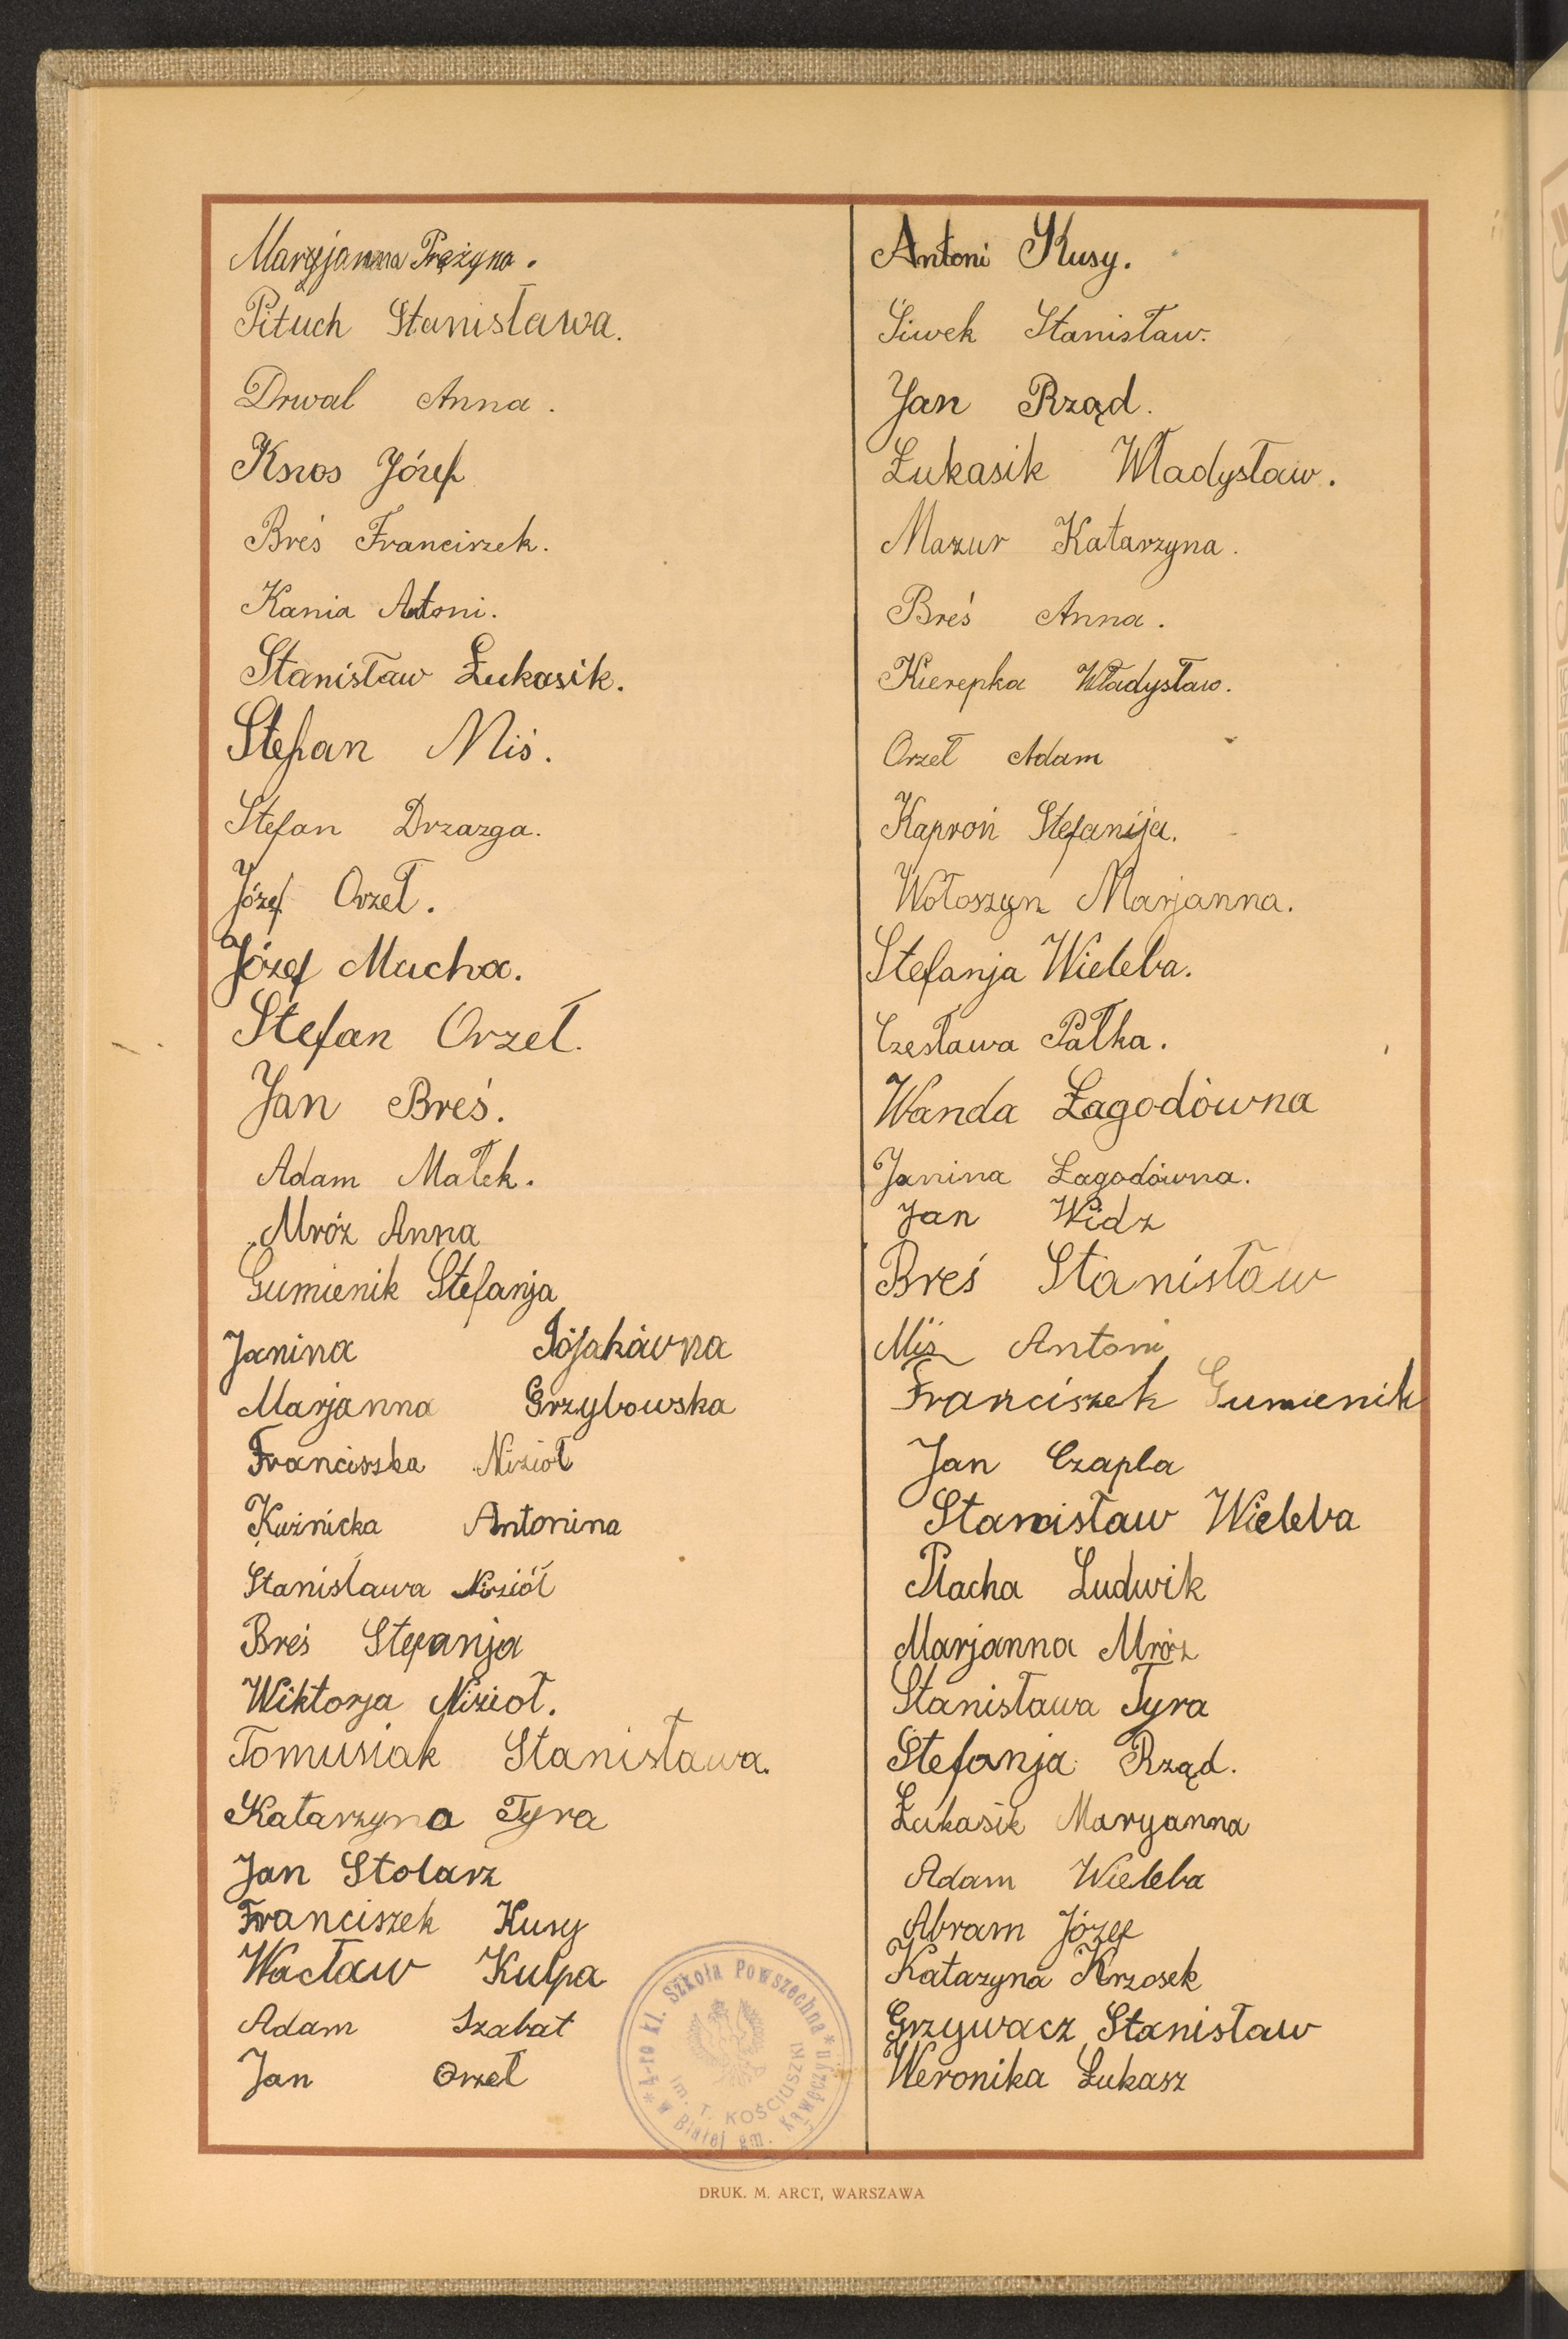 Maryjanna Prażyna.
Pituch Stanisława.
Drwal Anna.
Knos Józef
Breś Franciszek.
Kania Antoni.
Stanisław Łukasik.
Stefan Miś.
Stefan Drzazga.
Józef Orzeł.
Józef Macha.
Stefan Orzeł.
Jan Breś.
Adam Małek.
Mróz Anna
Gumienik Stefanja
Janina
Marjanna Grzybowska
Franciszka Nizioł
Kuźnicka Antonina
Stanisława Niziół
Breś Stefanja
Wiktorja Nizioł.
Tomusiak Stanisława.
Katarzyna Tyra
Jan Stolarz
Franciszek Kusy
Wacław Kulpa
Adam Szabat
Jan Orzeł
Antoni Kusy.
Siwek Stanisław.
Jan Rząd.
Łukasik Władysław.
Mazur Katarzyna.
Breś Anna.
Kierepka Władysław.
Orzeł Adam
Kaproń Stefanija.
Wołoszyn Marjanna.
Stefanja Wieleba.
Czesława Pałka.
Wanda Łagodówna
Janina Łagodówna.
Jan Widz
Breś Stanisław
Miś Antoni
Franciszek Gumienik
Jan Czapla
Stanisław Wieleba
Płacha Ludwik
Marjanna Mróz
Stanisława Tyra
Stefanja Rząd.
Łukasik Maryanna
Adam Wieleba
Abram Józef
Katazyna Krzosek
Grzywacz Stanisław
Weronika Łukasz
* 4-ro kl. Szkoła Powszechna *
im. T. KOŚCIUSZKI
w Białej gm. Kawęczyn
DRUK. M. ARCT, WARSZAWA